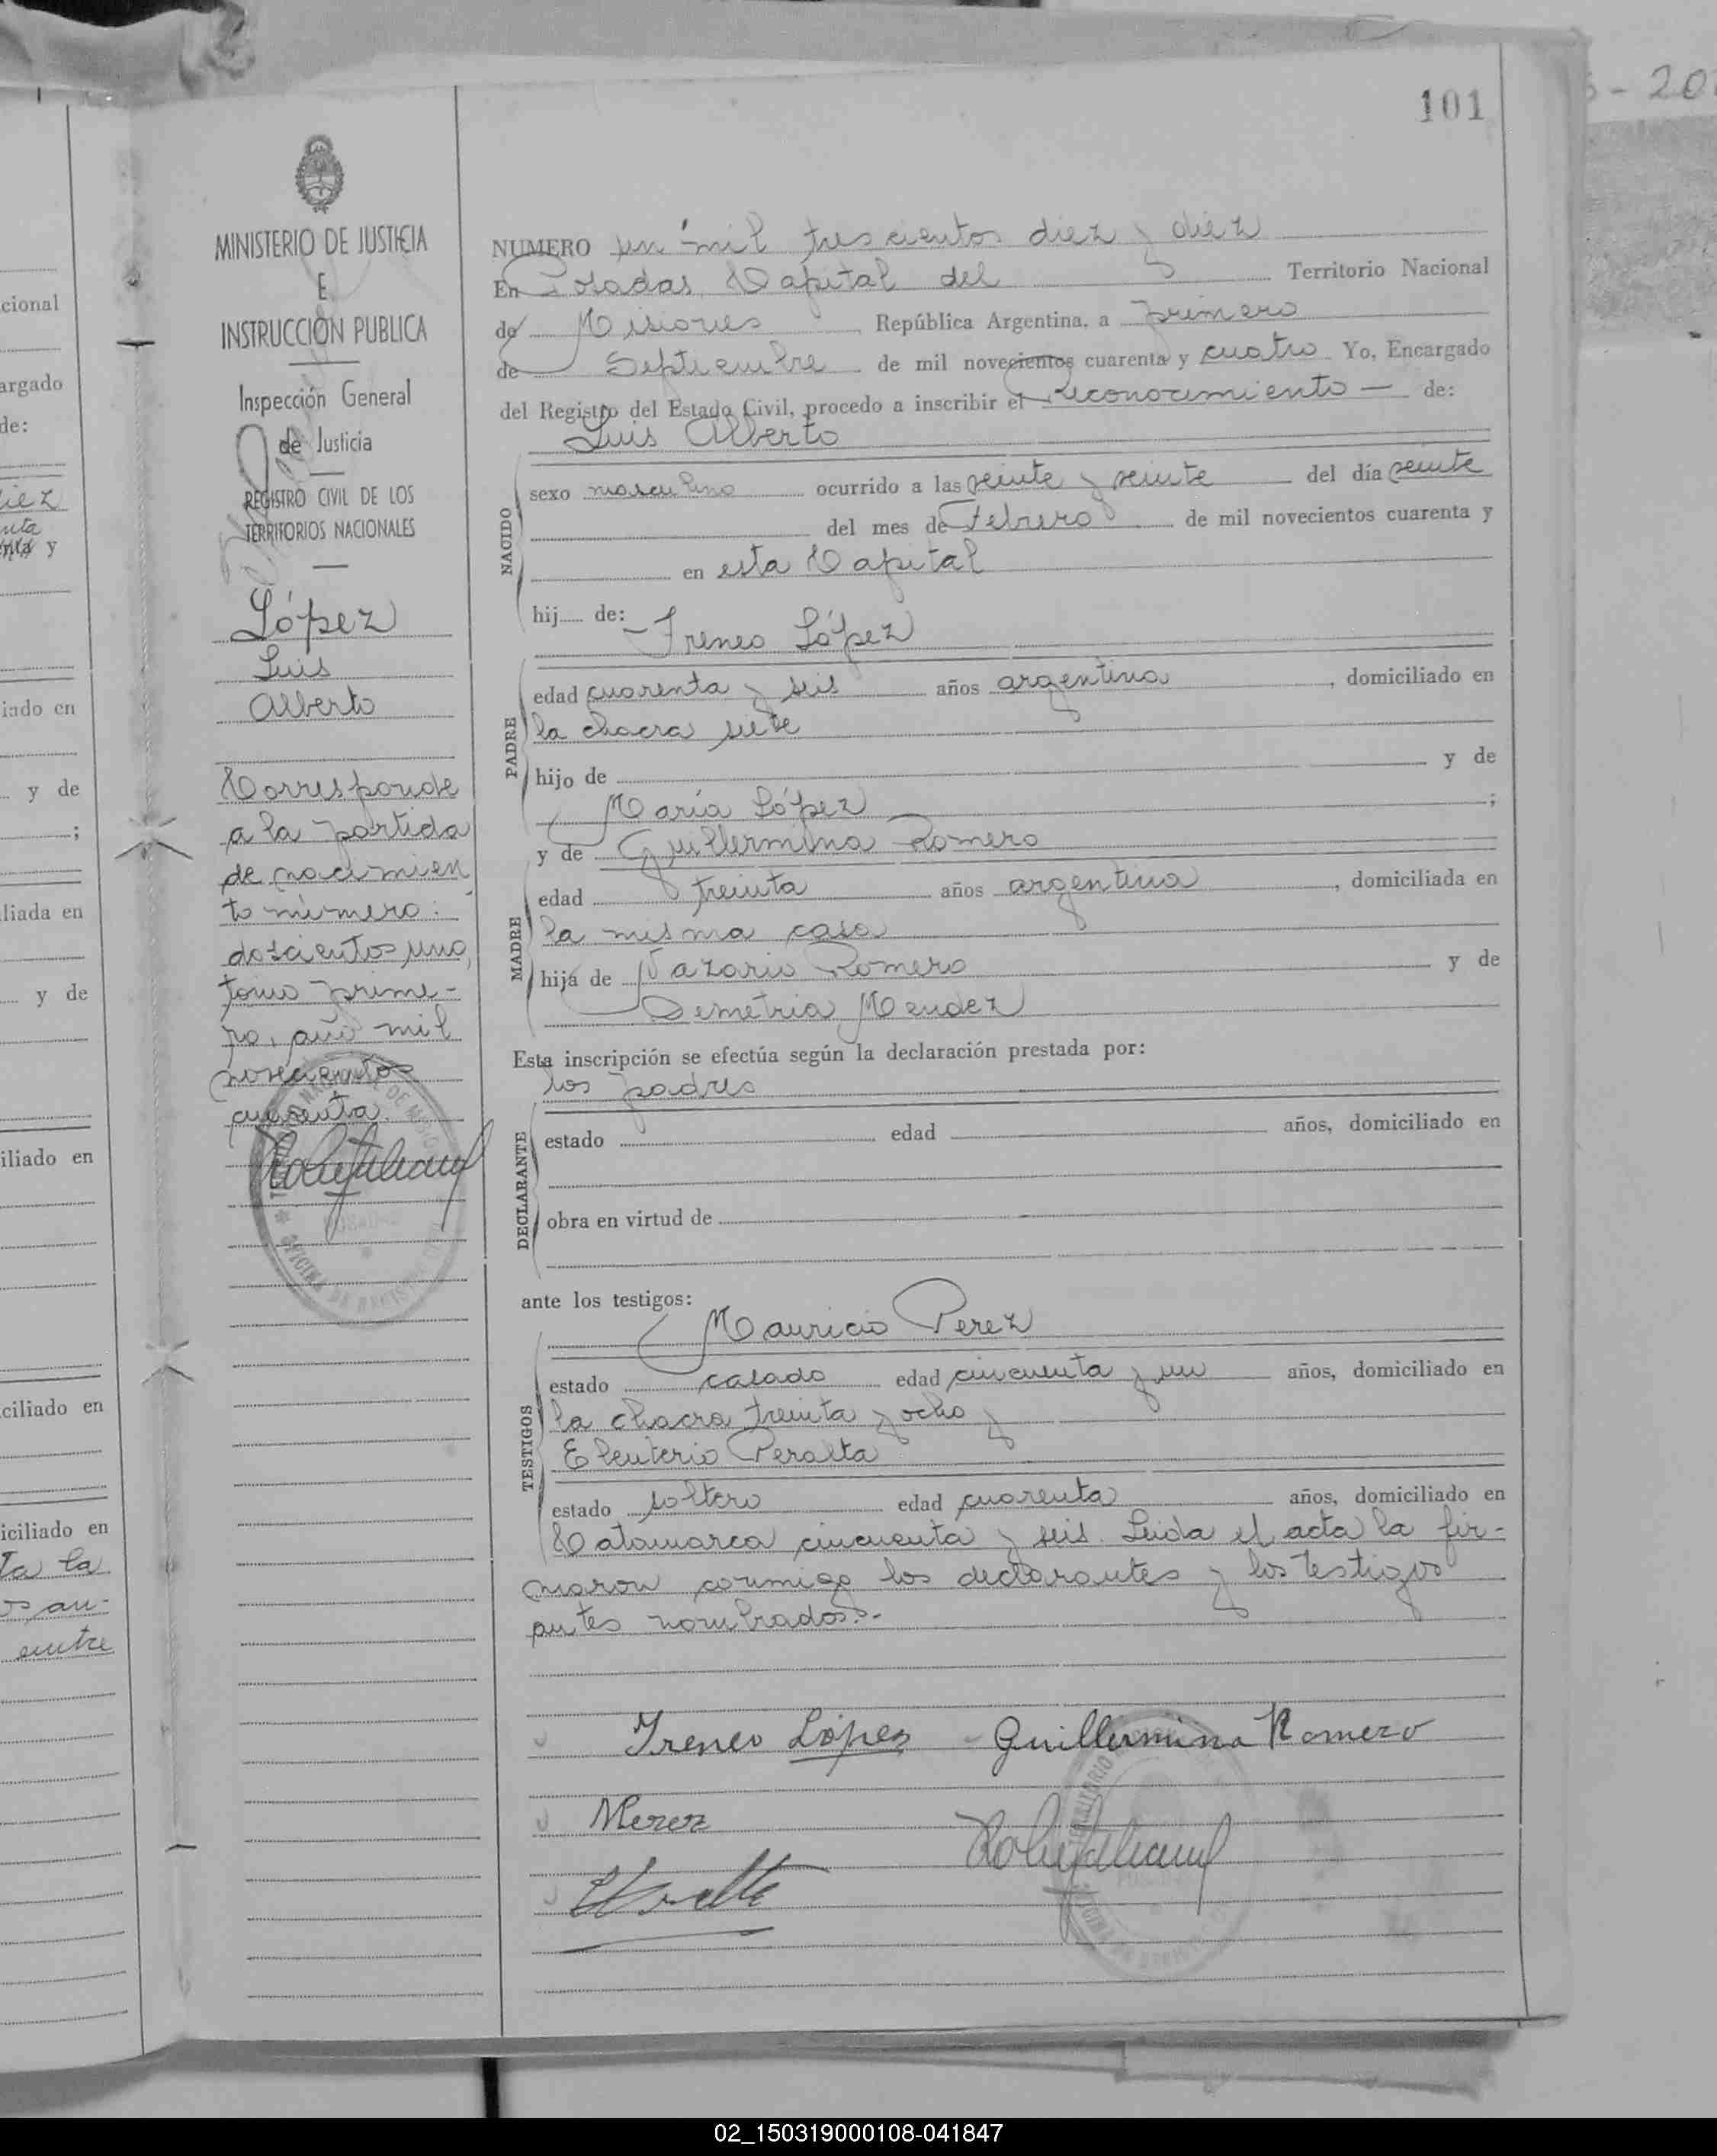 101
MINISTERIO DE JUSTICIA
E
INSTRUCCIÓN PUBLICA
Inspección General
de Justicia
REGISTRO CIVIL DE LOS
TERRITORIOS NACIONALES
López
Luis
Alberto
Corresponde
a la partida
de nacimien
to número:
doscientos uno,
tomo prime-
ro, año mil
novecientos
cuarenta.
NUMERO un mil trescientos diez y diez
En Posadas, Capital del Territorio Nacional
de Misiones República Argentina, a primero
de Septiembre de mil novecientos cuarenta y cuatro Yo, Encargado
del Registro del Estado Civil, procedo a inscribir el Reconocimiento — de:
Luis Alberto
NACIDO
sexo masculino ocurrido a las veinte y veinte del día veinte
del mes de Febrero de mil novecientos cuarenta y
en esta Capital
hij de:
Ireneo López
PADRE
edad cuarenta y seis años argentino, domiciliado en
la chacra siete
hijo de y de
María López ;
y de Guillermina Romero
MADRE
edad treinta años argentina, domiciliada en
la misma casa
hija de Nazario Romero y de
Demetria Mendez
Esta inscripción se efectúa según la declaración prestada por:
los padres
DECLARANTE
estado edad años, domiciliado en
obra en virtud de
ante los testigos:
Mauricio Perez
TESTIGOS
estado casado edad cincuenta y un años, domiciliado en
la chacra treinta y ocho y
Eleuterio Peralta
estado soltero edad cuarenta años, domiciliado en
Catamarca cincuenta y seis. Leida el acta la fir-
maron conmigo los declarantes y los testigos
antes nombrados.-
Ireneo López - Guillermina Romero
MPerez
cional
argado
de:
diez
y
iado en
y de
;
liada en
y de
iliado en
ciliado en
iciliado en
ta la
os an-
entre
02_150319000108-041847